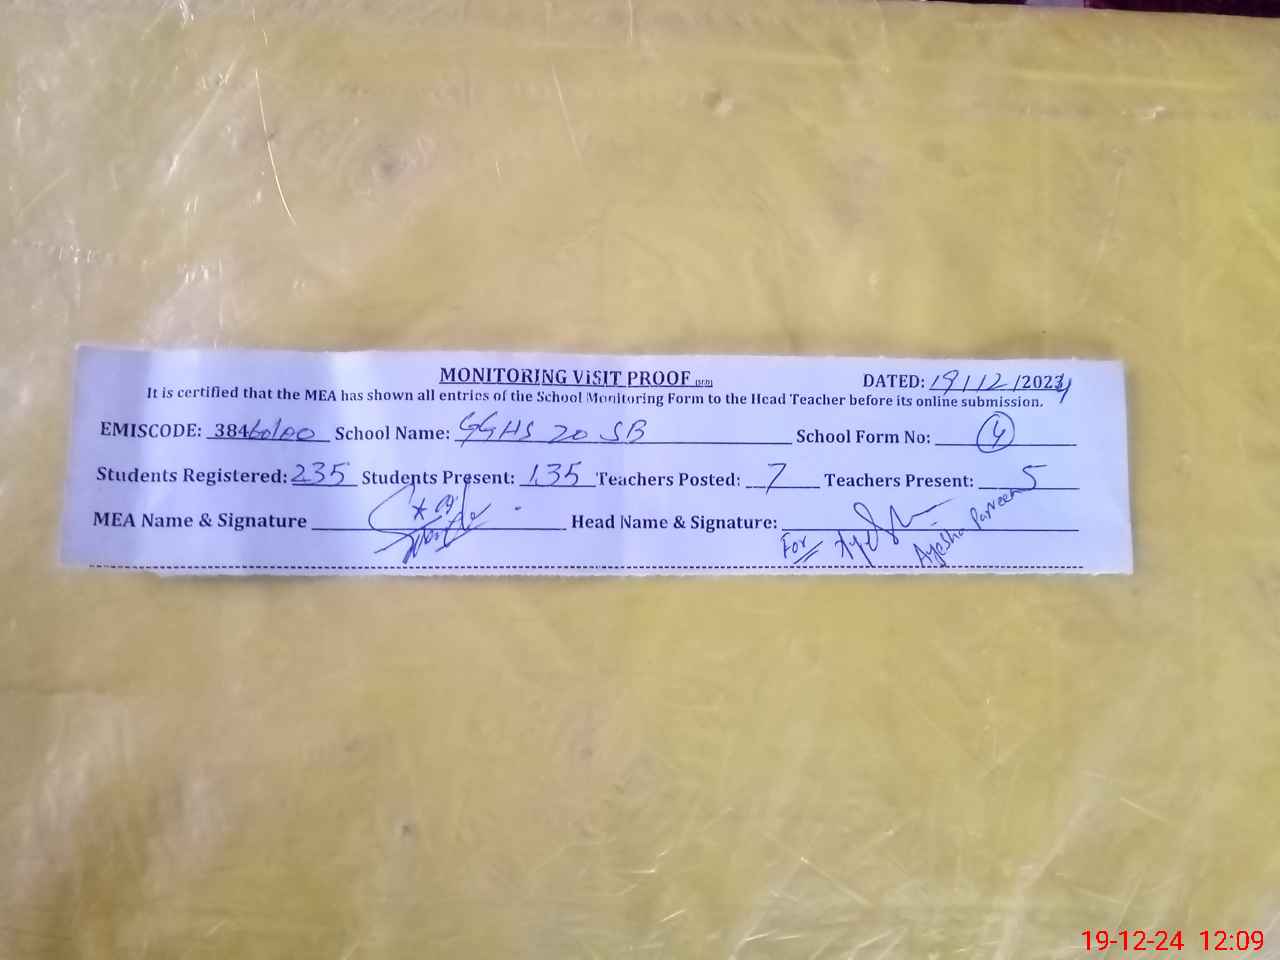 MONITORING ViSIT PROOF DATED: 19/12/2024
It is certified that the MEA has shown all entries of the School Monitoring Form to the Head Teacher before its online submission.
EMISCODE: 38460100 School Name: GGHS 20 SB School Form No: 4
Students Registered: 235 Students Present: 135 Teachers Posted: 7 Teachers Present: 5
MEA Name & Signature Head Name & Signature:
For Ayesha Parveen
19-12-24 12:09